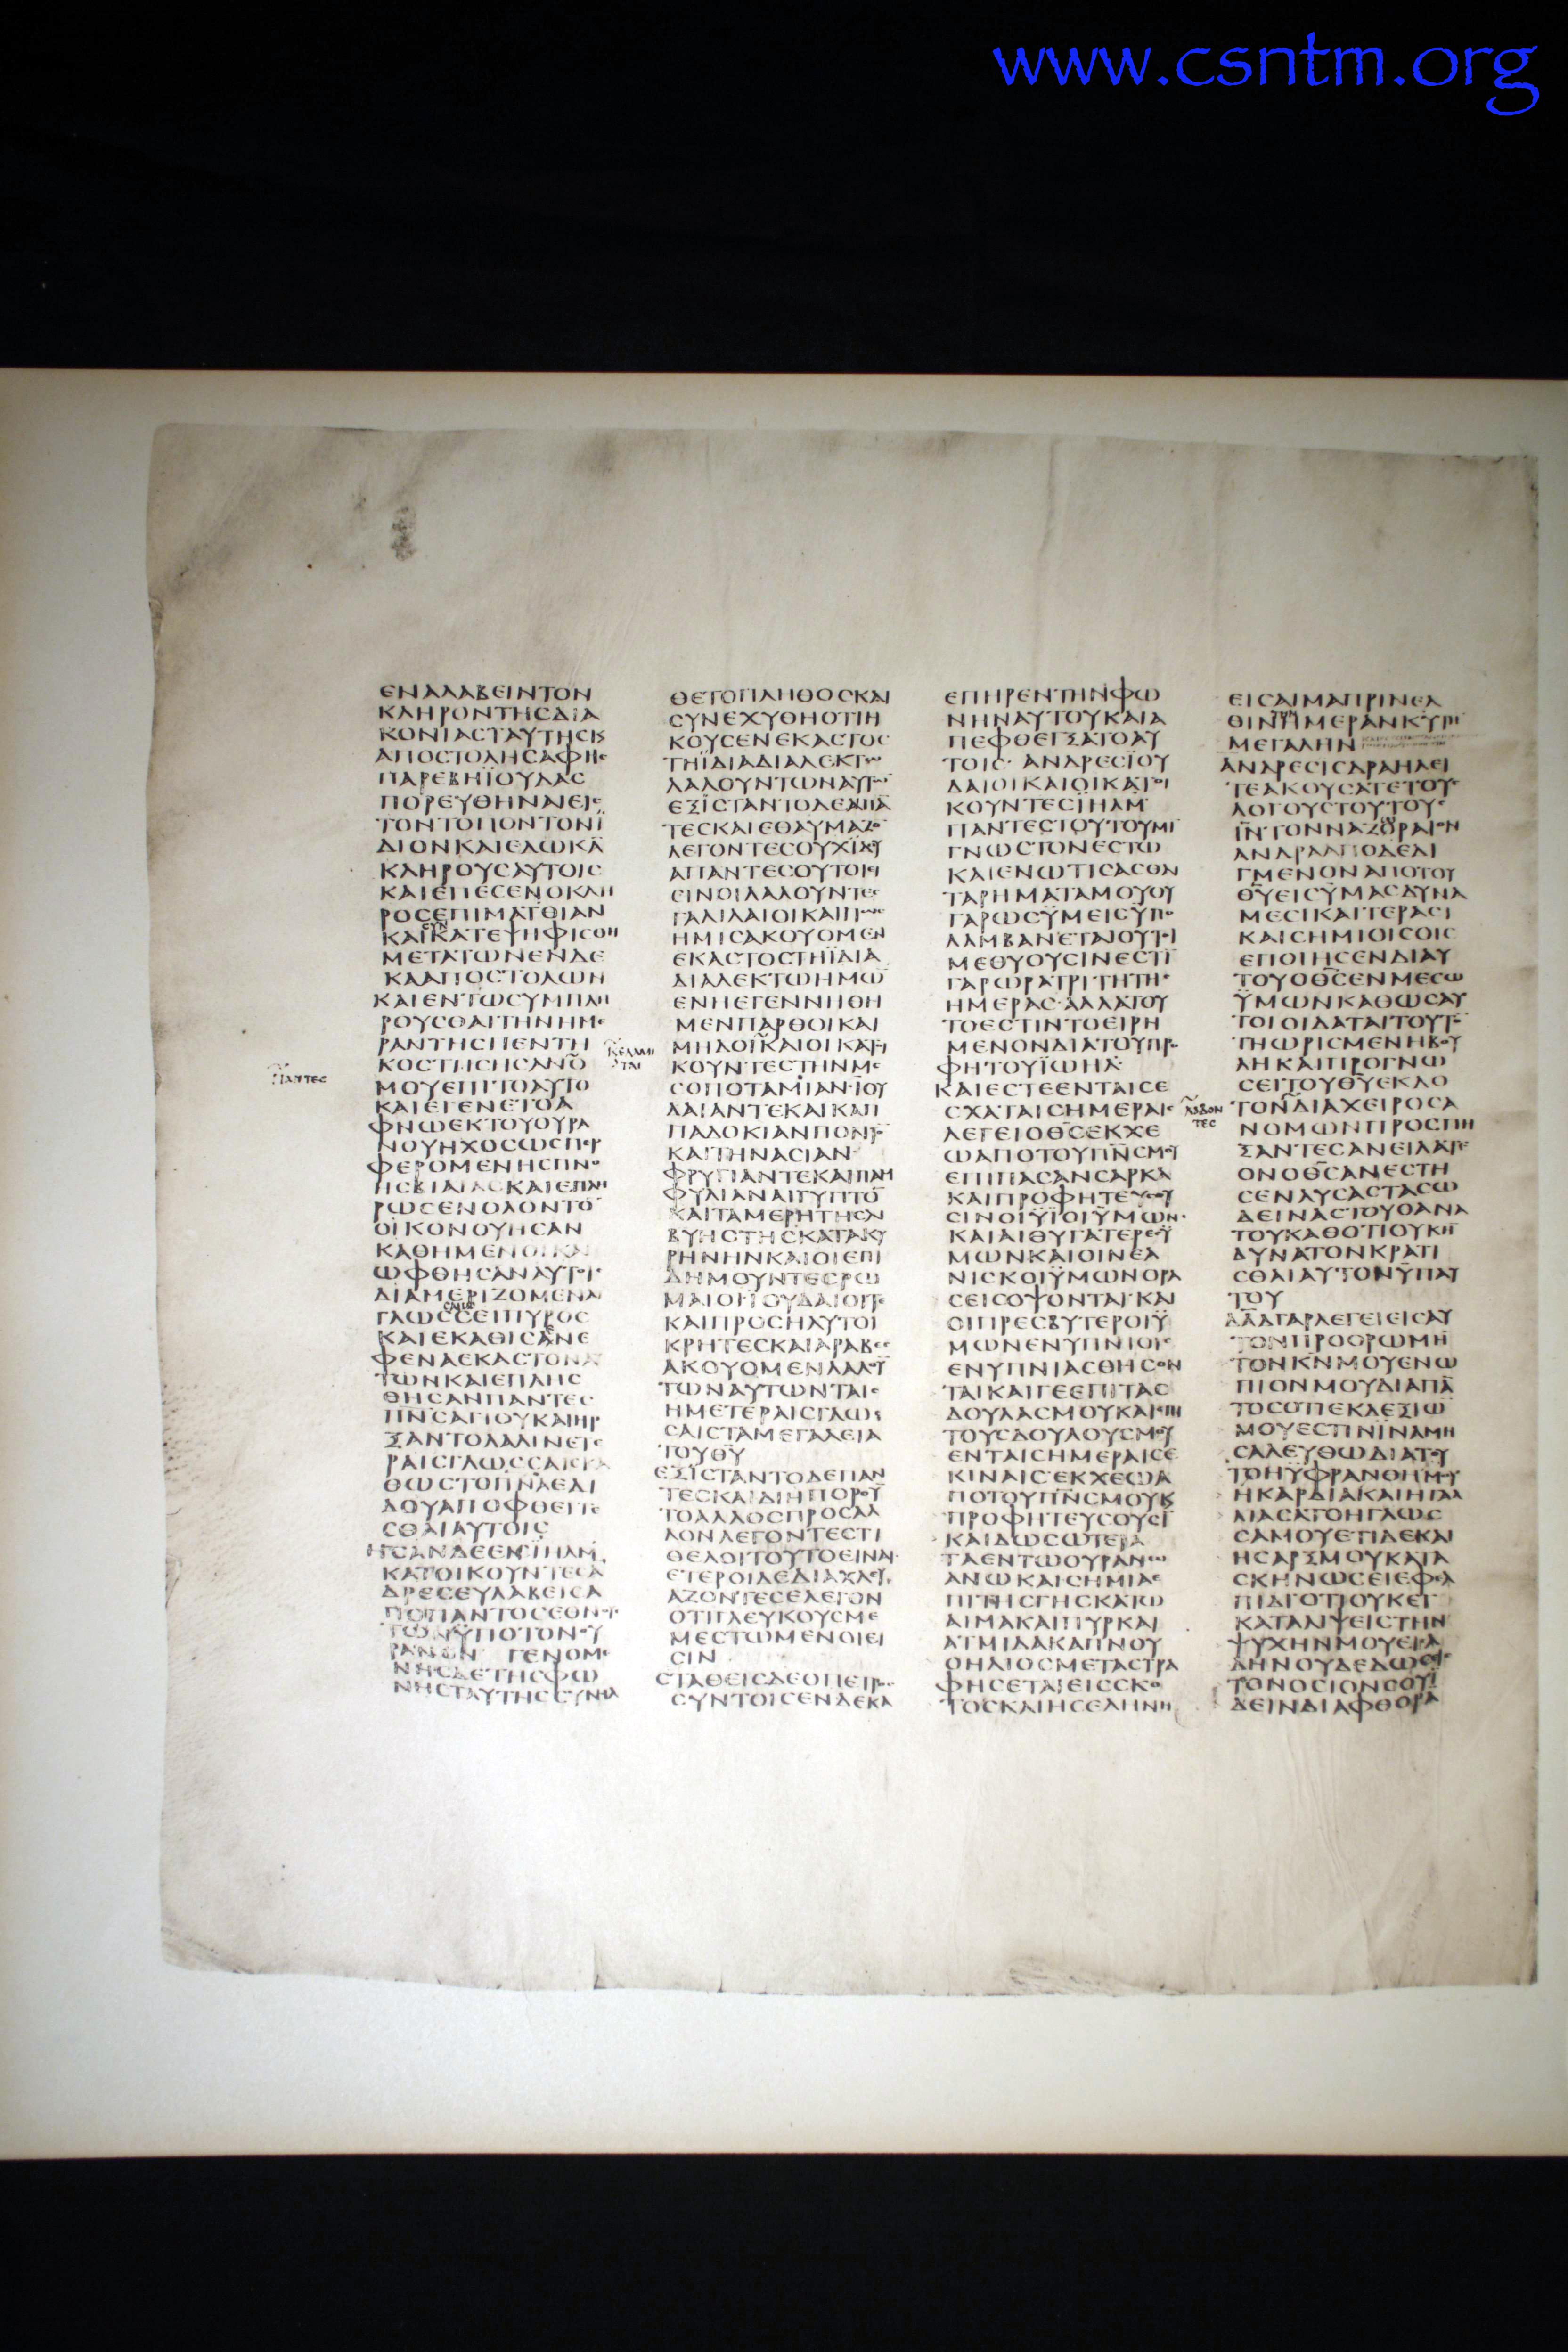 www.csntm.org
ΕΝΑΛΑΒΕΙΝΤΟΝ
ΚΛΗΡΟΝΤΗCΔΙΑ
ΚΟΝΙΑCΤΑΥΤΗCΚ
ΑΠΟCΤΟΛΗCΑΦΗC
ΠΑΡΕΒΗΪΟΥΔΑC
ΠΟΡΕΥΘΗΝΑΙΕΙC
ΤΟΝΤΟΠΟΝΤΟΝΪ
ΔΙΟΝΚΑΙΕΔΩΚᾹ
ΚΛΗΡΟΥCΑΥΤΟΙC
ΚΑΙΕΠΕCΕΝΟΚΛΗ
ΡΟCΕΠΙΜΑΤΘΙΑΝ
ΜΕΤΑΤΩΝΕΝΔΕ
ΚΑΑΠΟCΤΟΛΩΝ
ΚΑΙΕΝΤΩCΥΜΠΛΗ
ΡΟΥCΘΑΙΤΗΝΗΜΕ
ΡΑΝΤΗCΠΕΝΤΗ
ΚΟCΤΗCΗCΑΝΟ̄
ΠΑΝΤΕC
ΜΟΥΕΠΙΤΟΑΥΤΟ
ΚΑΙΕΓΕΝΕΤΟΑ
ΦΝΩΕΚΤΟΥΟΥΡΑ
ΝΟΥΗΧΟCΩCΠΕΡ
ΦΕΡΟΜΕΝΗCΠΝΟ
ΗCΒΙΑΙΑCΚΑΙΕΠΛΗ
ΡΩCΕΝΟΛΟΝΤΟ̄
ΟΙΚΟΝΟΥΗCΑΝ
ΚΑΘΗΜΕΝΟΙΚΑΙ
ΩΦΘΗCΑΝΑΥΤΟΙC
ΔΙΑΜΕΡΙΖΟΜΕΝΑΙ
ΦΕΝΔΕΚΑCΤΟΝΑΥ
ΤΩΝΚΑΙΕΠΛΗC
ΘΗCΑΝΠΑΝΤΕC
ΠΝ̄CΑΓΙΟΥΚΑΙΗΡ
ΞΑΝΤΟΛΑΛΙΝΕΤΕ
ΡΑΙCΓΛΩCCΑΙCΚΑ
ΘΩCΤΟΠΝ̄ΑΕΔΙ
ΔΟΥΑΠΟΦΘΕΓΓΕ
CΘΑΙΑΥΤΟΙC
ΗCΑΝΔΕΕΝΪΗΛΜ
ΚΑΤΟΙΚΟΥΝΤΕCΑ
ΔΡΕCΕΥΛΑΒΕΙCΑ
ΠΟΠΑΝΤΟCΕΘΝΟΥ
ΤΩΝΫΠΟΤΟΝΟΥ
ΡΑΝΟΝ ΓΕΝΟΜΕ
ΝΗCΔΕΤΗCΦΩ
ΝΗCΤΑΥΤΗCCΥΝΗΛ
ΘΕΤΟΠΛΗΘΟCΚΑΙ
CΥΝΕΧΥΘΗΟΤΙΗ
ΚΟΥCΕΝΕΚΑCΤΟC
ΤΗΪΔΙΑΔΙΑΛΕΚΤΩ
ΛΑΛΟΥΝΤΩΝΑΥΤΩ̄
ΕΞΙCΤΑΝΤΟΔΕΑΠᾹ
ΤΕCΚΑΙΕΘΑΥΜΑΖΟ̄
ΛΕΓΟΝΤΕCΟΥΧΪΔΟΥ
ΑΠΑΝΤΕCΟΥΤΟΙΕΙ
CΙΝΟΙΛΑΛΟΥΝΤΕC
ΓΑΛΙΛΑΙΟΙΚΑΙΠΩC
ΗΜΙCΑΚΟΥΟΜΕΝ
ΕΚΑCΤΟCΤΗΪΔΙΑ
ΔΙΑΛΕΚΤΩΗΜΩ̄
ΕΝΗΕΓΕΝΝΗΘΗ
ΜΕΝΠΑΡΘΟΙΚΑΙ
ΜΗΔΟΙΚΑΙΟΙΚΑΤΟΙ
ΚΟΥΝΤΕCΤΗΝΜΕ
CΟΠΟΤΑΜΙΑΝ·ΙΟΥ
ΔΑΙΑΝΤΕΚΑΙΚΑΠ
ΠΑΔΟΚΙΑΝΠΟΝΤΟ̄
ΚΑΙΤΗΝΑCΙΑΝ·
ΦΡΥΓΙΑΝΤΕΚΑΙΠΑΜ
ΦΥΛΙΑΝΑΙΓΥΠΤΟ̄
ΚΑΙΤΑΜΕΡΗΤΗCΛΙ
ΒΥΗCΤΗCΚΑΤΑΚΥ
ΡΗΝΗΝΚΑΙΟΙΕΠΙ
ΔΗΜΟΥΝΤΕCΡΩ
ΜΑΙΟΙΪΟΥΔΑΙΟΙΤΕ
ΚΑΙΠΡΟCΗΛΥΤΟΙ
ΚΡΗΤΕCΚΑΙΑΡΑΒΕC
ΑΚΟΥΟΜΕΝΛΑΛΟῩ
ΤΩΝΑΥΤΩΝΤΑΙC
ΗΜΕΤΕΡΑΙCΓΛΩC
CΑΙCΤΑΜΕΓΑΛΕΙΑ
ΤΟΥΘ̄Υ
ΕΞΙCΤΑΝΤΟΔΕΠΑΝ
ΤΕCΚΑΙΔΙΗΠΟΡΟῩ
ΤΟΑΛΛΟCΠΡΟCΑΛ
ΛΟΝΛΕΓΟΝΤΕCΤΙ
ΘΕΛΟΙΤΟΥΤΟΕΙΝΑΙ
ΕΤΕΡΟΙΔΕΔΙΑΧΛΕΥ
ΑΖΟΝΤΕCΕΛΕΓΟΝ
ΟΤΙΓΛΕΥΚΟΥCΜΕ
ΜΕCΤΩΜΕΝΟΙΕΙ
CΙΝ
CΤΑΘΕΙCΔΕΟΠΕΤΡΟC
CΥΝΤΟΙCΕΝΔΕΚΑ
ΕΠΗΡΕΝΤΗΝΦΩ
ΝΗΝΑΥΤΟΥΚΑΙΑ
ΠΕΦΘΕΓΞΑΤΟΑΥ
ΤΟΙC· ΑΝΔΡΕCΪΟΥ
ΔΑΙΟΙΚΑΙΟΙΚΑΤΟΙ
ΚΟΥΝΤΕCΪΗΛΜ
ΠΑΝΤΕCΤΟΥΤΟΥΜΙ
ΓΝΩCΤΟΝΕCΤΩ
ΚΑΙΕΝΩΤΙCΑCΘΑΙ
ΤΑΡΗΜΑΤΑΜΟΥΟΥ
ΓΑΡΩCΫΜΕΙCΫΠΟ
ΛΑΜΒΑΝΕΤΑΙΟΥΤΟΙ
ΜΕΘΥΟΥCΙΝΕCΤῙ
ΓΑΡΩΡΑΤΡΙΤΗΤΗC
ΗΜΕΡΑC·ΑΛΛΑΤΟΥ
ΤΟΕCΤΙΝΤΟΕΙΡΗ
ΜΕΝΟΝΔΙΑΤΟΥΠΡΟ
ΦΗΤΟΥΪΩΗΛ
ΚΑΙΕCΤΕΕΝΤΑΙCΕ
CΧΑΤΑΙCΗΜΕΡΑΙC
ΛΕΓΕΙΟΘ̄CΕΚΧΕ
ΩΑΠΟΤΟΥΠΝ̄CΜΟΥ
ΕΠΙΠΑCΑΝCΑΡΚΑ
ΚΑΙΠΡΟΦΗΤΕΥCΟΥ
CΙΝΟΙΫΪΟΙΫΜΩΝ·
ΚΑΙΑΙΘΥΓΑΤΕΡΕCΫ
ΜΩΝΚΑΙΟΙΝΕΑ
ΝΙCΚΟΙΫΜΩΝΟΡΑ
CΕΙCΟΨΟΝΤΑΙ·ΚΑΙ
ΟΙΠΡΕCΒΥΤΕΡΟΙΫ
ΜΩΝΕΝΥΠΝΙΟΙC
ΕΝΥΠΝΙΑCΘΗCΟΝ
ΤΑΙΚΑΙΓΕΕΠΙΤΑC
ΔΟΥΛΑCΜΟΥΚΑΙΕΠΙ
ΤΟΥCΔΟΥΛΟΥCΜΟΥ
ΕΝΤΑΙCΗΜΕΡΑΙCΕ
ΚΙΝΑΙCΕΚΧΕΩΑ
ΠΟΤΟΥΠΝ̄CΜΟΥΚ
ΠΡΟΦΗΤΕΥCΟΥCῙ
ΚΑΙΔΩCΩΤΕΡΑ
ΤΑΕΝΤΩΟΥΡΑΝΩ
ΑΝΩΚΑΙCΗΜΙΑΕ
ΠΙΤΗCΓΗCΚΑΤΩ
ΑΙΜΑΚΑΙΠΥΡΚΑΙ
ΑΤΜΙΔΑΚΑΠΝΟΥ
ΟΗΛΙΟCΜΕΤΑCΤΡΑ
ΦΗCΕΤΑΙΕΙCCΚΟ
ΤΟCΚΑΙΗCΕΛΗΝΗ
ΕΙCΑΙΜΑΠΡΙΝΕΛ
ΜΕΓΑΛΗΝ
ΑΝΔΡΕCΙCΡΑΗΛΕΙ
ΤΕΑΚΟΥCΑΤΕΤΟΥC
ΛΟΓΟΥCΤΟΥΤΟΥC
ΙΝ̄ΤΟΝΝΑΖΩΡΑΙΟΝ
ΓΜΕΝΟΝΑΠΟΤΟΥ
Θ̄ΥΕΙCΫΜΑCΔΥΝΑ
ΜΕCΙΚΑΙΤΕΡΑCΙ
ΚΑΙCΗΜΙΟΙCΟΙC
ΕΠΟΙΗCΕΝΔΙΑΥ
ΤΟΥΟΘ̄CΕΝΜΕCΩ
ΫΜΩΝΚΑΘΩCΑΥ
ΤΟΙΟΙΔΑΤΑΙΤΟΥΤΟ̄
ΤΗΩΡΙCΜΕΝΗΒΟΥ
ΛΗΚΑΙΠΡΟΓΝΩ
CΕΙΤΟΥΘ̄ΥΕΚΔΟ
ΛΑΒΟΝ
ΤΕC
ΤΟΝΔΙΑΧΕΙΡΟCΑ
ΝΟΜΩΝΠΡΟCΠΗ
ΞΑΝΤΕCΑΝΕΙΛΑΤΕ
ΟΝΟΘ̄CΑΝΕCΤΗ
CΕΝΛΥCΑCΤΑCΩ
ΔΕΙΝΑCΤΟΥΘΑΝΑ
ΤΟΥΚΑΘΟΤΙΟΥΚΗ̄
ΔΥΝΑΤΟΝΚΡΑΤΙ
CΘΑΙΑΥΤΟΝΫΠΑΥ
ΤΟΥ
ΔΑΔΓΑΡΛΕΓΕΙΕΙCΑΥ
ΤΟΝΠΡΟΟΡΩΜΗ
ΤΟΝΚΝ̄ΜΟΥΕΝΩ
ΠΙΟΝΜΟΥΔΙΑΠᾹ
ΤΟCΟΤΙΕΚΔΕΞΙΩ̄
ΜΟΥΕCΤΙΝΪΝΑΜΗ
CΑΛΕΥΘΩΔΙΑΤΟΥ
ΤΟΗΫΦΡΑΝΘΗΜΟΥ
ΗΚΑΡΔΙΑΚΑΙΗΓΑΛ
ΛΙΑCΑΤΟΗΓΛΩC
CΑΜΟΥΕΤΙΔΕΚΑΙ
ΗCΑΡΞΜΟΥΚΑΤΑ
CΚΗΝΩCΕΙΕΦΕΛ
ΠΙΔΙΟΤΙΟΥΚΕΓ
ΚΑΤΑΛΙΨΕΙCΤΗΝ
ΨΥΧΗΝΜΟΥΕΙCΑ
ΔΗΝΟΥΔΕΔΩCΕΙC
ΤΟΝΟCΙΟΝCΟΥΪ
ΔΕΙΝΔΙΑΦΘΟΡΑ